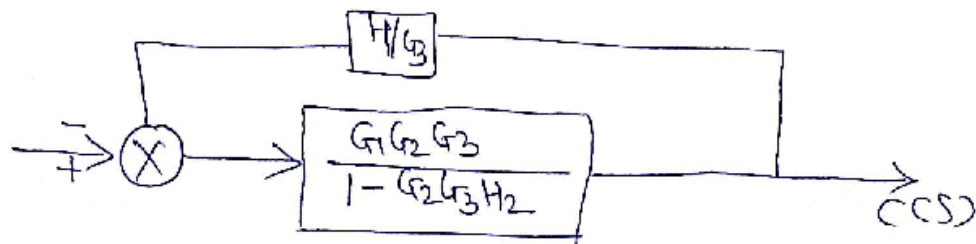 H/G3
-
+
X
G1G2G3
1-G2G3H2
C(S)